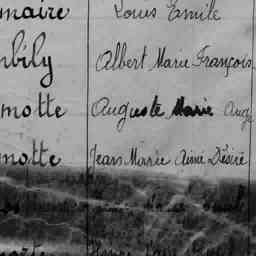 maire Louis Emile
bily Albert Marie François
motte Auguste Marie Aug
motte Jean Marie Aimé Désiré